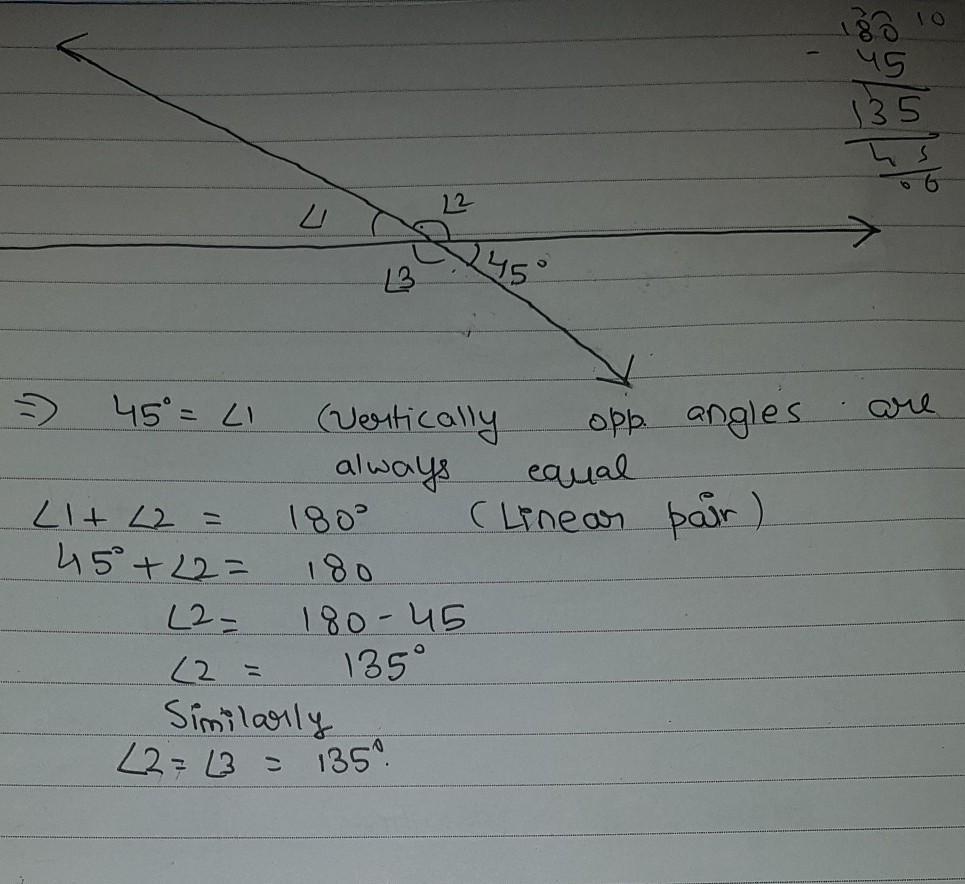 180 10
- 45
135
45
∠1
∠2
∠3
45°
⇒ 45° = ∠1 (Vertically opp. angles are
always equal
∠1 + ∠2 = 180° (Linear pair)
45° + ∠2 = 180
∠2 = 180 - 45
∠2 = 135°
Similarly
∠2 = ∠3 = 135°.